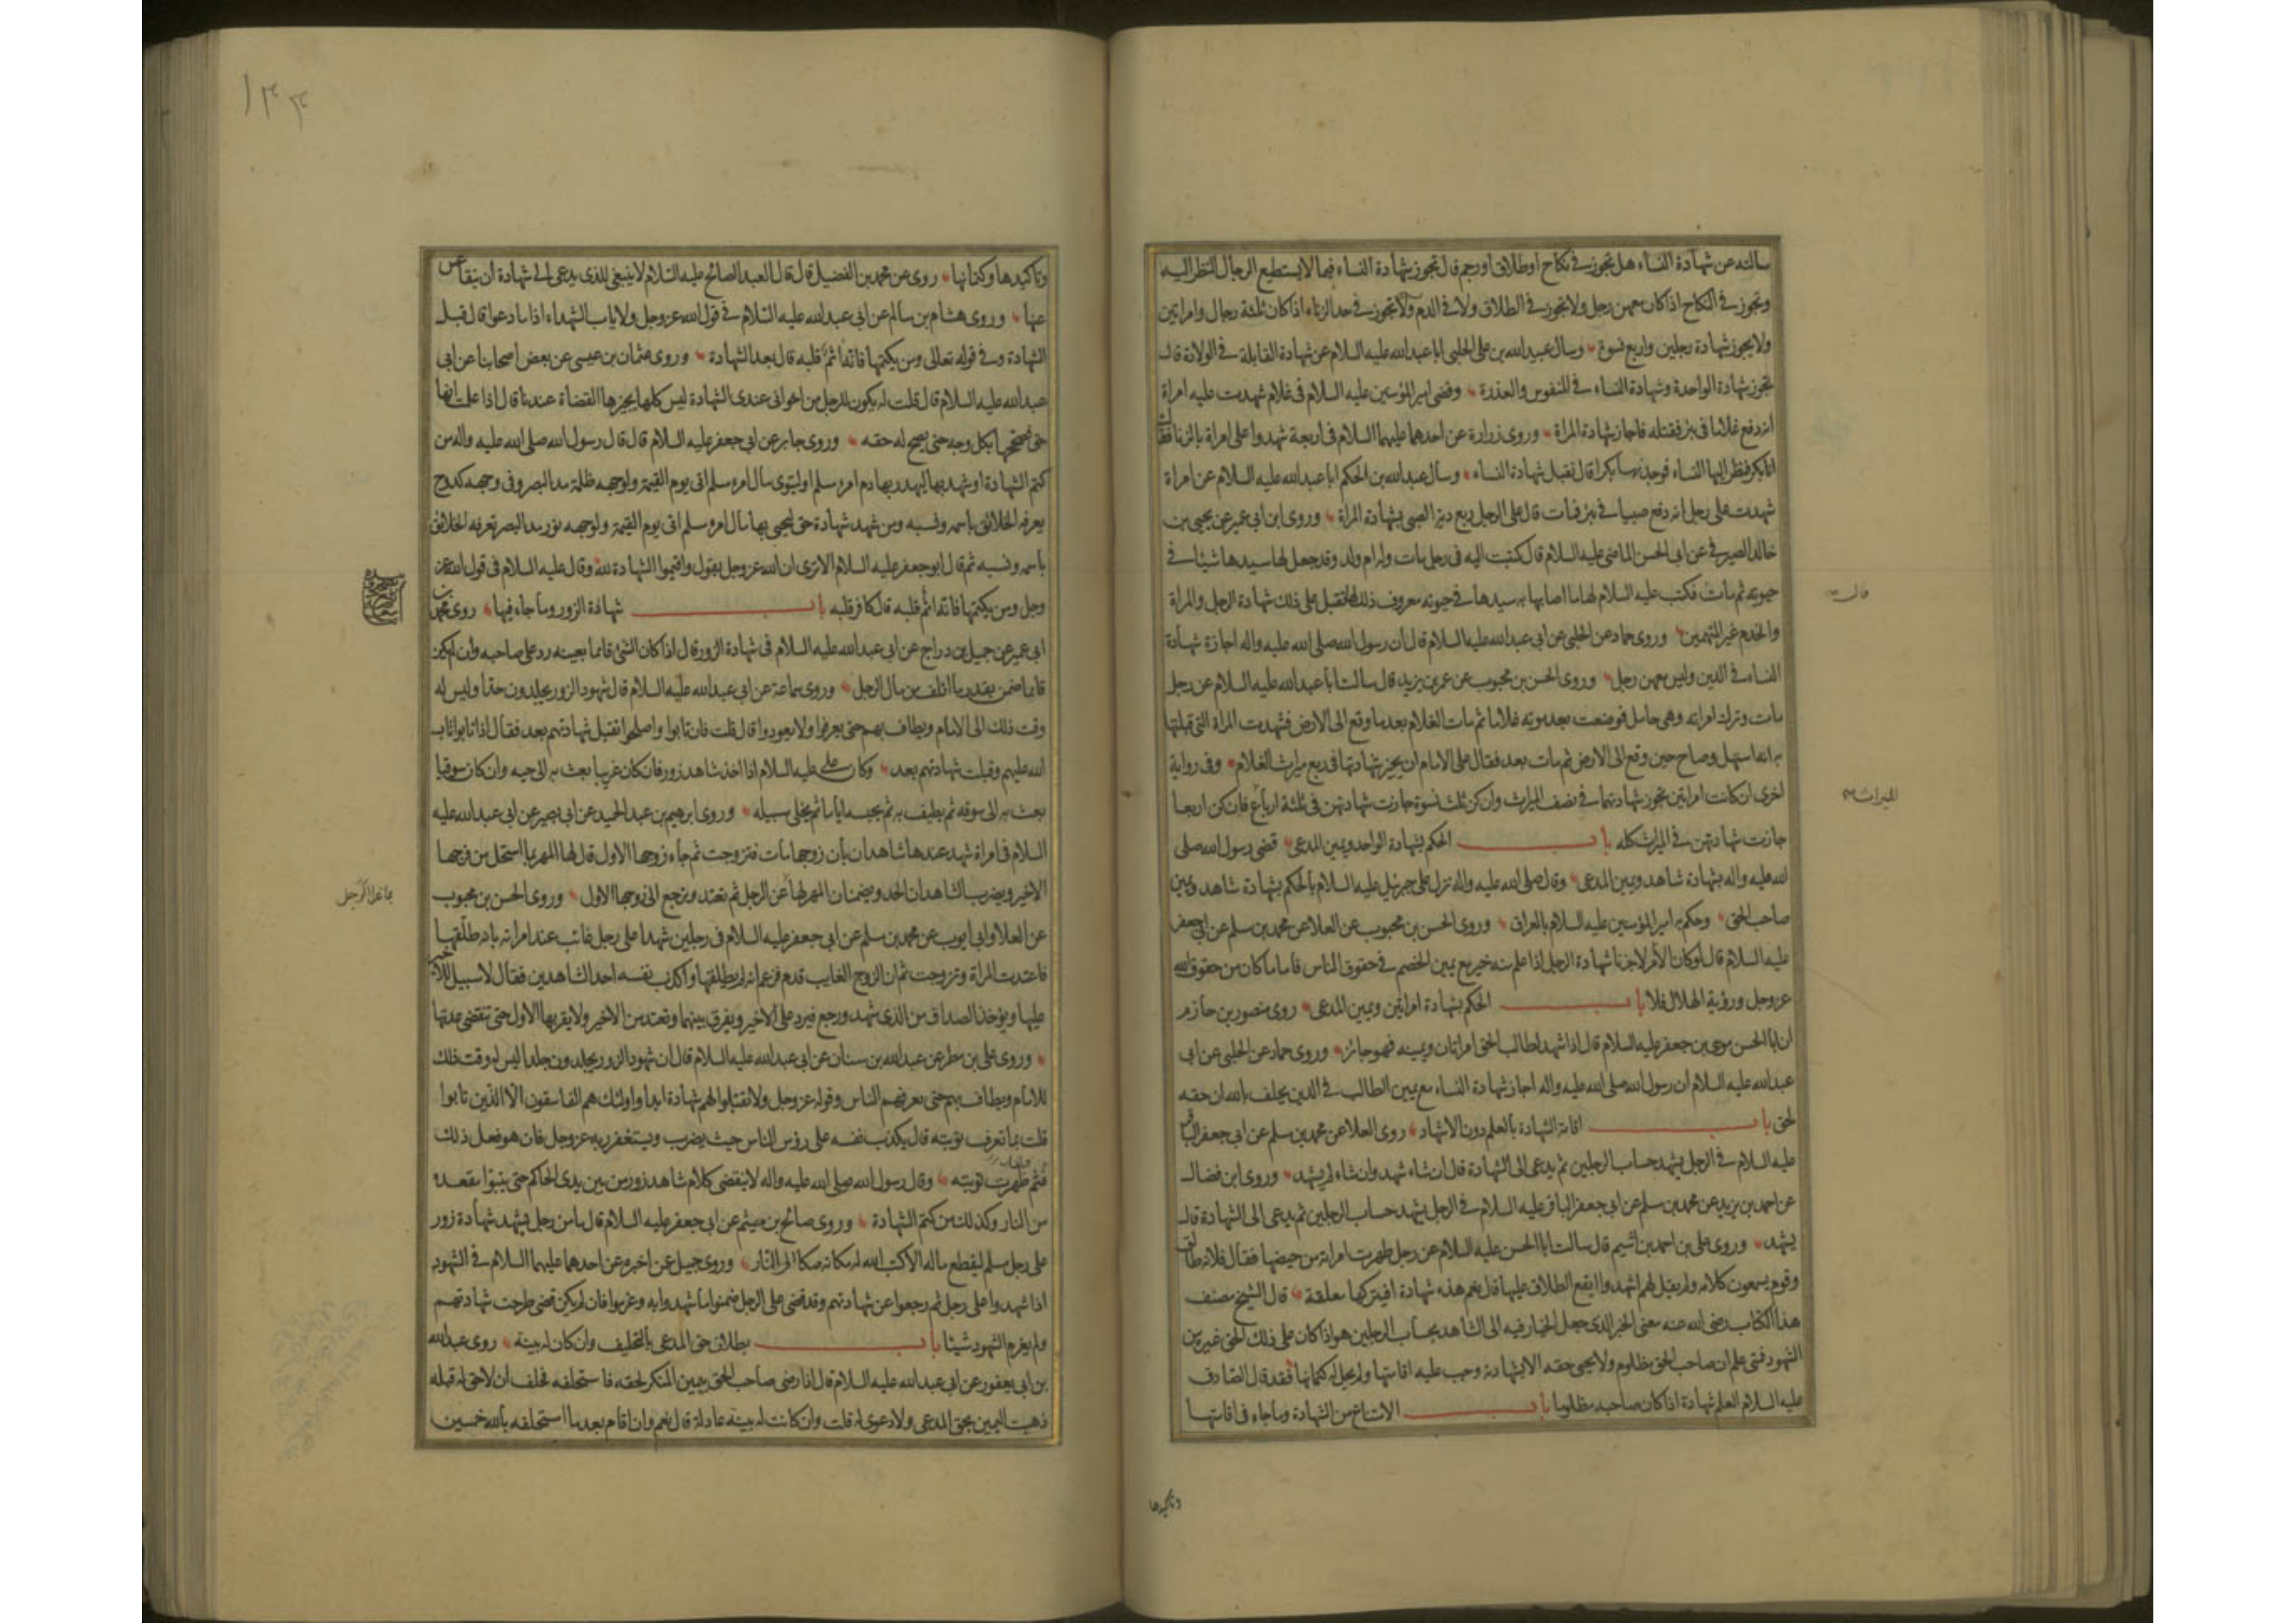 سالته عن شهادة النساء هل تجوز في نكاح او طلاق او رجم قال تجوز شهادة النساء فيما لا يستطيع الرجال النظر اليه
وتجوز في النكاح اذا كان معهن رجل ولا تجوز في الطلاق ولا في الدم ولا تجوز في حد الزناء اذا كان ثلثة رجال وامراتين
ولا يجوز شهادة رجلين واربع نسوة وسال عبيد الله بن علي الحلبي ابا عبد الله عليه السلام عن شهادة القابلة في الولادة قال
تجوز شهادة الواحدة وشهادة النساء في المنفوس والعذرة وقضى امير المؤمنين عليه السلام في غلام شهدت عليه امراة
انه دفع غلاما في بئر فقتله فاجاز شهادة المراة وروى زرارة عن احدهما عليهما السلام في اربعة شهدوا على امراة بالزنا فقالت
انا بكر فنظر اليها النساء فوجدنها بكرا قال تقبل شهادة النساء وسال عبد الله بن الحكم ابا عبد الله عليه السلام عن امراة
شهدت على رجل انه دفع صبيا في بئر فمات قال على الرجل ربع دية الصبي بشهادة المراة وروى ابن ابي عمير عن يحيى بن
خالد الصيرفي عن ابي الحسن الماضي عليه السلام قال كتبت اليه في رجل مات وله ام ولد وقد جعل لها سيدها شيئا في
حيوته ثم مات فكتب عليه السلام لها ما اصابها به سيدها في حيوته معروف ذلك لها تقبل على ذلك شهادة الرجل والمراة
والخدم غير المتهمين وروى حماد عن الحلبي عن ابي عبد الله عليه السلام قال ان رسول الله صلى الله عليه واله اجاز شهادة
النساء في الدين وليس معهن رجل وروى الحسن بن محبوب عن عمر بن يزيد قال سالت ابا عبد الله عليه السلام عن رجل
مات وترك امراته وهي حامل فوضعت بعد موته غلاما ثم مات الغلام بعد ما وقع الى الارض فشهدت المراة التي قبلتها
به انه استهل وصاح حين وقع الى الارض ثم مات بعد فقال على الامام ان يجيز شهادتها في ربع ميراث الغلام وفي رواية
اخرى ان كانت امراتين تجوز شهادتهما في نصف الميراث وان كن ثلث نسوة جازت شهادتهن في ثلثة ارباع فان كن اربعا
جازت شهادتهن في الميراث كله باب الحكم بشهادة الواحد ويمين المدعي قضى رسول الله صلى
الله عليه واله بشهادة شاهد ويمين المدعي وقال صلى الله عليه واله نزل علي جبرئيل عليه السلام بالحكم بشهادة شاهد ويمين
صاحب الحق وحكم به امير المؤمنين عليه السلام بالعراق وروى الحسن بن محبوب عن العلا عن محمد بن مسلم عن ابي جعفر
عليه السلام قال لو كان الامر لاجزنا شهادة الرجل اذا علم منه خير مع يمين الخصم في حقوق الناس فاما ما كان من حقوق الله
عز وجل ورؤية الهلال فلا باب الحكم بشهادة امراتين ويمين المدعي روى منصور بن حازم
ان ابا الحسن موسى بن جعفر عليه السلام قال اذا شهد لطالب الحق امراتان ويمينه فهو جائز وروى حماد عن الحلبي عن ابي
عبد الله عليه السلام ان رسول الله صلى الله عليه واله اجاز شهادة النساء مع يمين الطالب في الدين يحلف بالله ان حقه
لحق باب اقامة الشهادة بالعلم دون الاشهاد روى العلا عن محمد بن مسلم عن ابي جعفر الباقر
عليه السلام في الرجل يشهد حساب الرجلين ثم يدعى الى الشهادة قال ان شاء شهد وان شاء لم يشهد وروى ابن فضال
عن احمد بن يزيد عن محمد بن مسلم عن ابي جعفر الباقر عليه السلام في الرجل يشهد حساب الرجلين ثم يدعى الى الشهادة قال
يشهد وروى علي بن احمد بن اشيم قال سالت ابا الحسن عليه السلام عن رجل طهرت امراته من حيضها فقال فلانة طالق
وقوم يسمعون كلامه ولم يقل لهم اشهدوا ايقع الطلاق عليها قال نعم هذه شهادة افيتركها معلقة قال الشيخ مصنف
هذا الكتاب رضي الله عنه معنى الخبر الذي جعل الخيار فيه الى الشاهد بحساب الرجلين هو اذا كان على ذلك الحق غيره من
الشهود فمتى علم ان صاحب الحق مظلوم ولا يحيى حقه الا بشهادته وجب عليه اقامتها ولم يحل له كتمانها فقد قال الصادق
عليه السلام العلم شهادة اذا كان صاحبه مظلوما باب الامتناع من الشهادة وما جاء في اقامتها
قال
الميراث
وتاكيدها
١٣٣
وتاكيدها وكتمانها روى عن محمد بن الفضيل قال قال العبد الصالح عليه السلام لا ينبغي للذي يدعى الى شهادة ان يتقاعس
عنها وروى هشام بن سالم عن ابي عبد الله عليه السلام في قول الله عز وجل ولا ياب الشهداء اذا ما دعوا قال قبل
الشهادة وفي قوله تعالى ومن يكتمها فانه اثم قلبه قال بعد الشهادة وروى عثمان بن عيسى عن بعض اصحابنا عن ابي
عبد الله عليه السلام قال قلت له يكون للرجل من اخواني عندي الشهادة ليس كلها يجيزها القضاة عندنا قال اذا علمت انها
حق فصححها بكل وجه حتى يصح له حقه وروى جابر عن ابي جعفر عليه السلام قال قال رسول الله صلى الله عليه واله من
كتم الشهادة او شهد بها ليهدر بها دم امرء مسلم او ليتوى مال امرء مسلم اتى يوم القيمة ولوجهه ظلمة مد البصر وفي وجهه كدوح
يعرفه الخلائق باسمه ونسبه ومن شهد شهادة حق ليحيى بها مال امرء مسلم اتى يوم القيمة ولوجهه نور مد البصر تعرفه الخلائق
باسمه ونسبه ثم قال ابو جعفر عليه السلام الا ترى ان الله عز وجل يقول واقيموا الشهادة لله وقال عليه السلام في قول الله عز
وجل ومن يكتمها فانه اثم قلبه قال كافر قلبه باب شهادة الزور وما جاء فيها روى محمد بن
ابي عمير عن جميل بن دراج عن ابي عبد الله عليه السلام في شهادة الزور قال اذا كان الشئ قائما بعينه رد على صاحبه وان لم يكن
قائما ضمن بقدر ما اتلف من مال الرجل وروى سماعة عن ابي عبد الله عليه السلام قال شهود الزور يجلدون حدا وليس له
وقت ذلك الى الامام ويطاف بهم حتى يعرفوا ولا يعودوا قال قلت فان تابوا واصلحوا تقبل شهادتهم بعد فقال اذا تابوا تاب
الله عليهم وقبلت شهادتهم بعد وكان علي عليه السلام اذا اخذ شاهد زور فان كان غريبا بعث به الى حيه وان كان سوقيا
بعث به الى سوقه ثم يطيف به ثم يحبسه اياما ثم يخلي سبيله وروى ابرهيم بن عبد الحميد عن ابي بصير عن ابي عبد الله عليه
السلام في امراة شهد عندها شاهدان بان زوجها مات فتزوجت ثم جاء زوجها الاول قال لها المهر بما استحل من فرجها
الاخير ويضرب الشاهدان الحد ويضمنان المهر لها عن الرجل ثم تعتد وترجع الى زوجها الاول وروى الحسن بن محبوب
عن العلا وابي ايوب عن محمد بن مسلم عن ابي جعفر عليه السلام في رجلين شهدا على رجل غائب عند امراته بانه طلقها
فاعتدت المراة وتزوجت ثم ان الزوج الغايب قدم فزعم انه لم يطلقها واكذب نفسه احد الشاهدين فقال لا سبيل للاخير
عليها ويؤخذ الصداق من الذي شهد ورجع فيرد على الاخير ويفرق بينهما وتعتد من الاخير ولا يقربها الاول حتى تنقضي عدتها
وروى علي بن مطر عن عبد الله بن سنان عن ابي عبد الله عليه السلام قال ان شهود الزور يجلدون جلدا ليس له وقت ذلك
للامام ويطاف بهم حتى يعرفهم الناس وقوله عز وجل ولا تقبلوا لهم شهادة ابدا واولئك هم الفاسقون الا الذين تابوا
قلت بما تعرف توبته قال يكذب نفسه على رؤس الناس حيث يضرب ويستغفر ربه عز وجل فان هو فعل ذلك
فثم ظهرت توبته وقال رسول الله صلى الله عليه واله لا ينقضي كلام شاهد زور من بين يدي الحاكم حتى يتبوا مقعده
من النار وكذلك من كتم الشهادة وروى صالح بن ميثم عن ابي جعفر عليه السلام قال ما من رجل يشهد شهادة زور
على رجل مسلم ليقطع ماله الا كتب الله له مكانه صكا الى النار وروى جميل عن اخبره عن احدهما عليهما السلام في الشهود
اذا شهدوا على رجل ثم رجعوا عن شهادتهم وقد قضى على الرجل ضمنوا ما شهدوا به وغرموا فان لم يكن قضى طرحت شهادتهم
ولم يغرم الشهود شيئا باب بطلان حق المدعي بالتحليف وان كان له بينة روى عبد الله
بن ابي يعفور عن ابي عبد الله عليه السلام قال اذا رضي صاحب الحق بيمين المنكر لحقه فاستحلفه فحلف ان لا حق له قبله
ذهبت اليمين بحق المدعي ولا دعوى له قلت وان كانت له بينة عادلة قال نعم وان اقام بعد ما استحلفه بالله خمسين